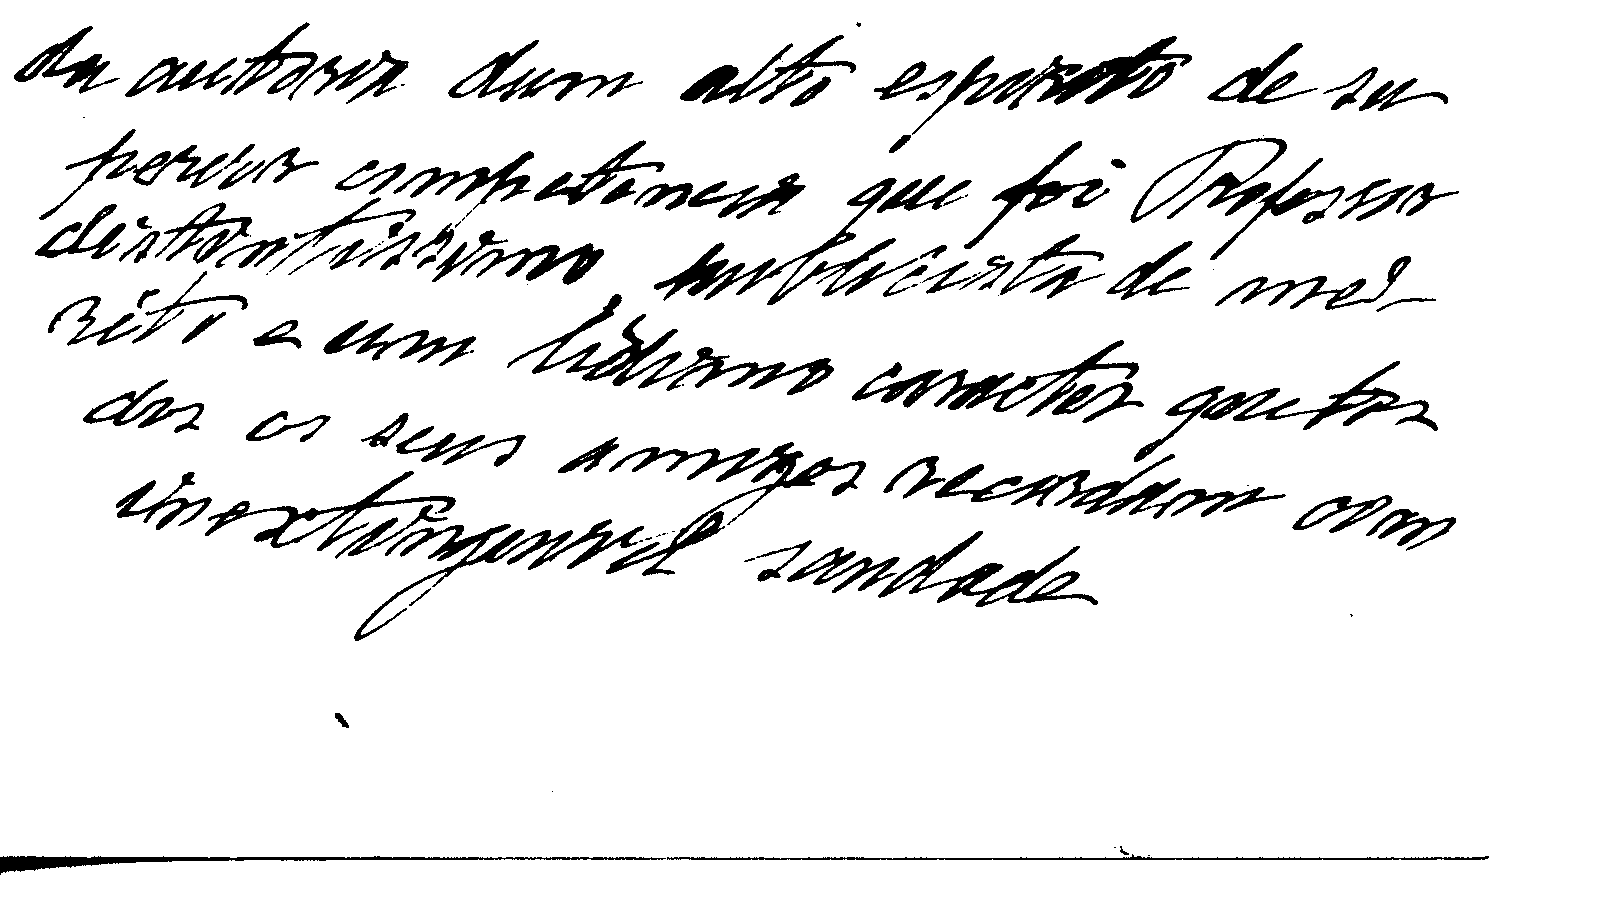 da autoria dum alto espirito de su
perior competencia que foi Professor
distintissimo publicista de me-
rito e um lidimo caracter que to
dos os seus amigos recordam com
inextinguivel saudade